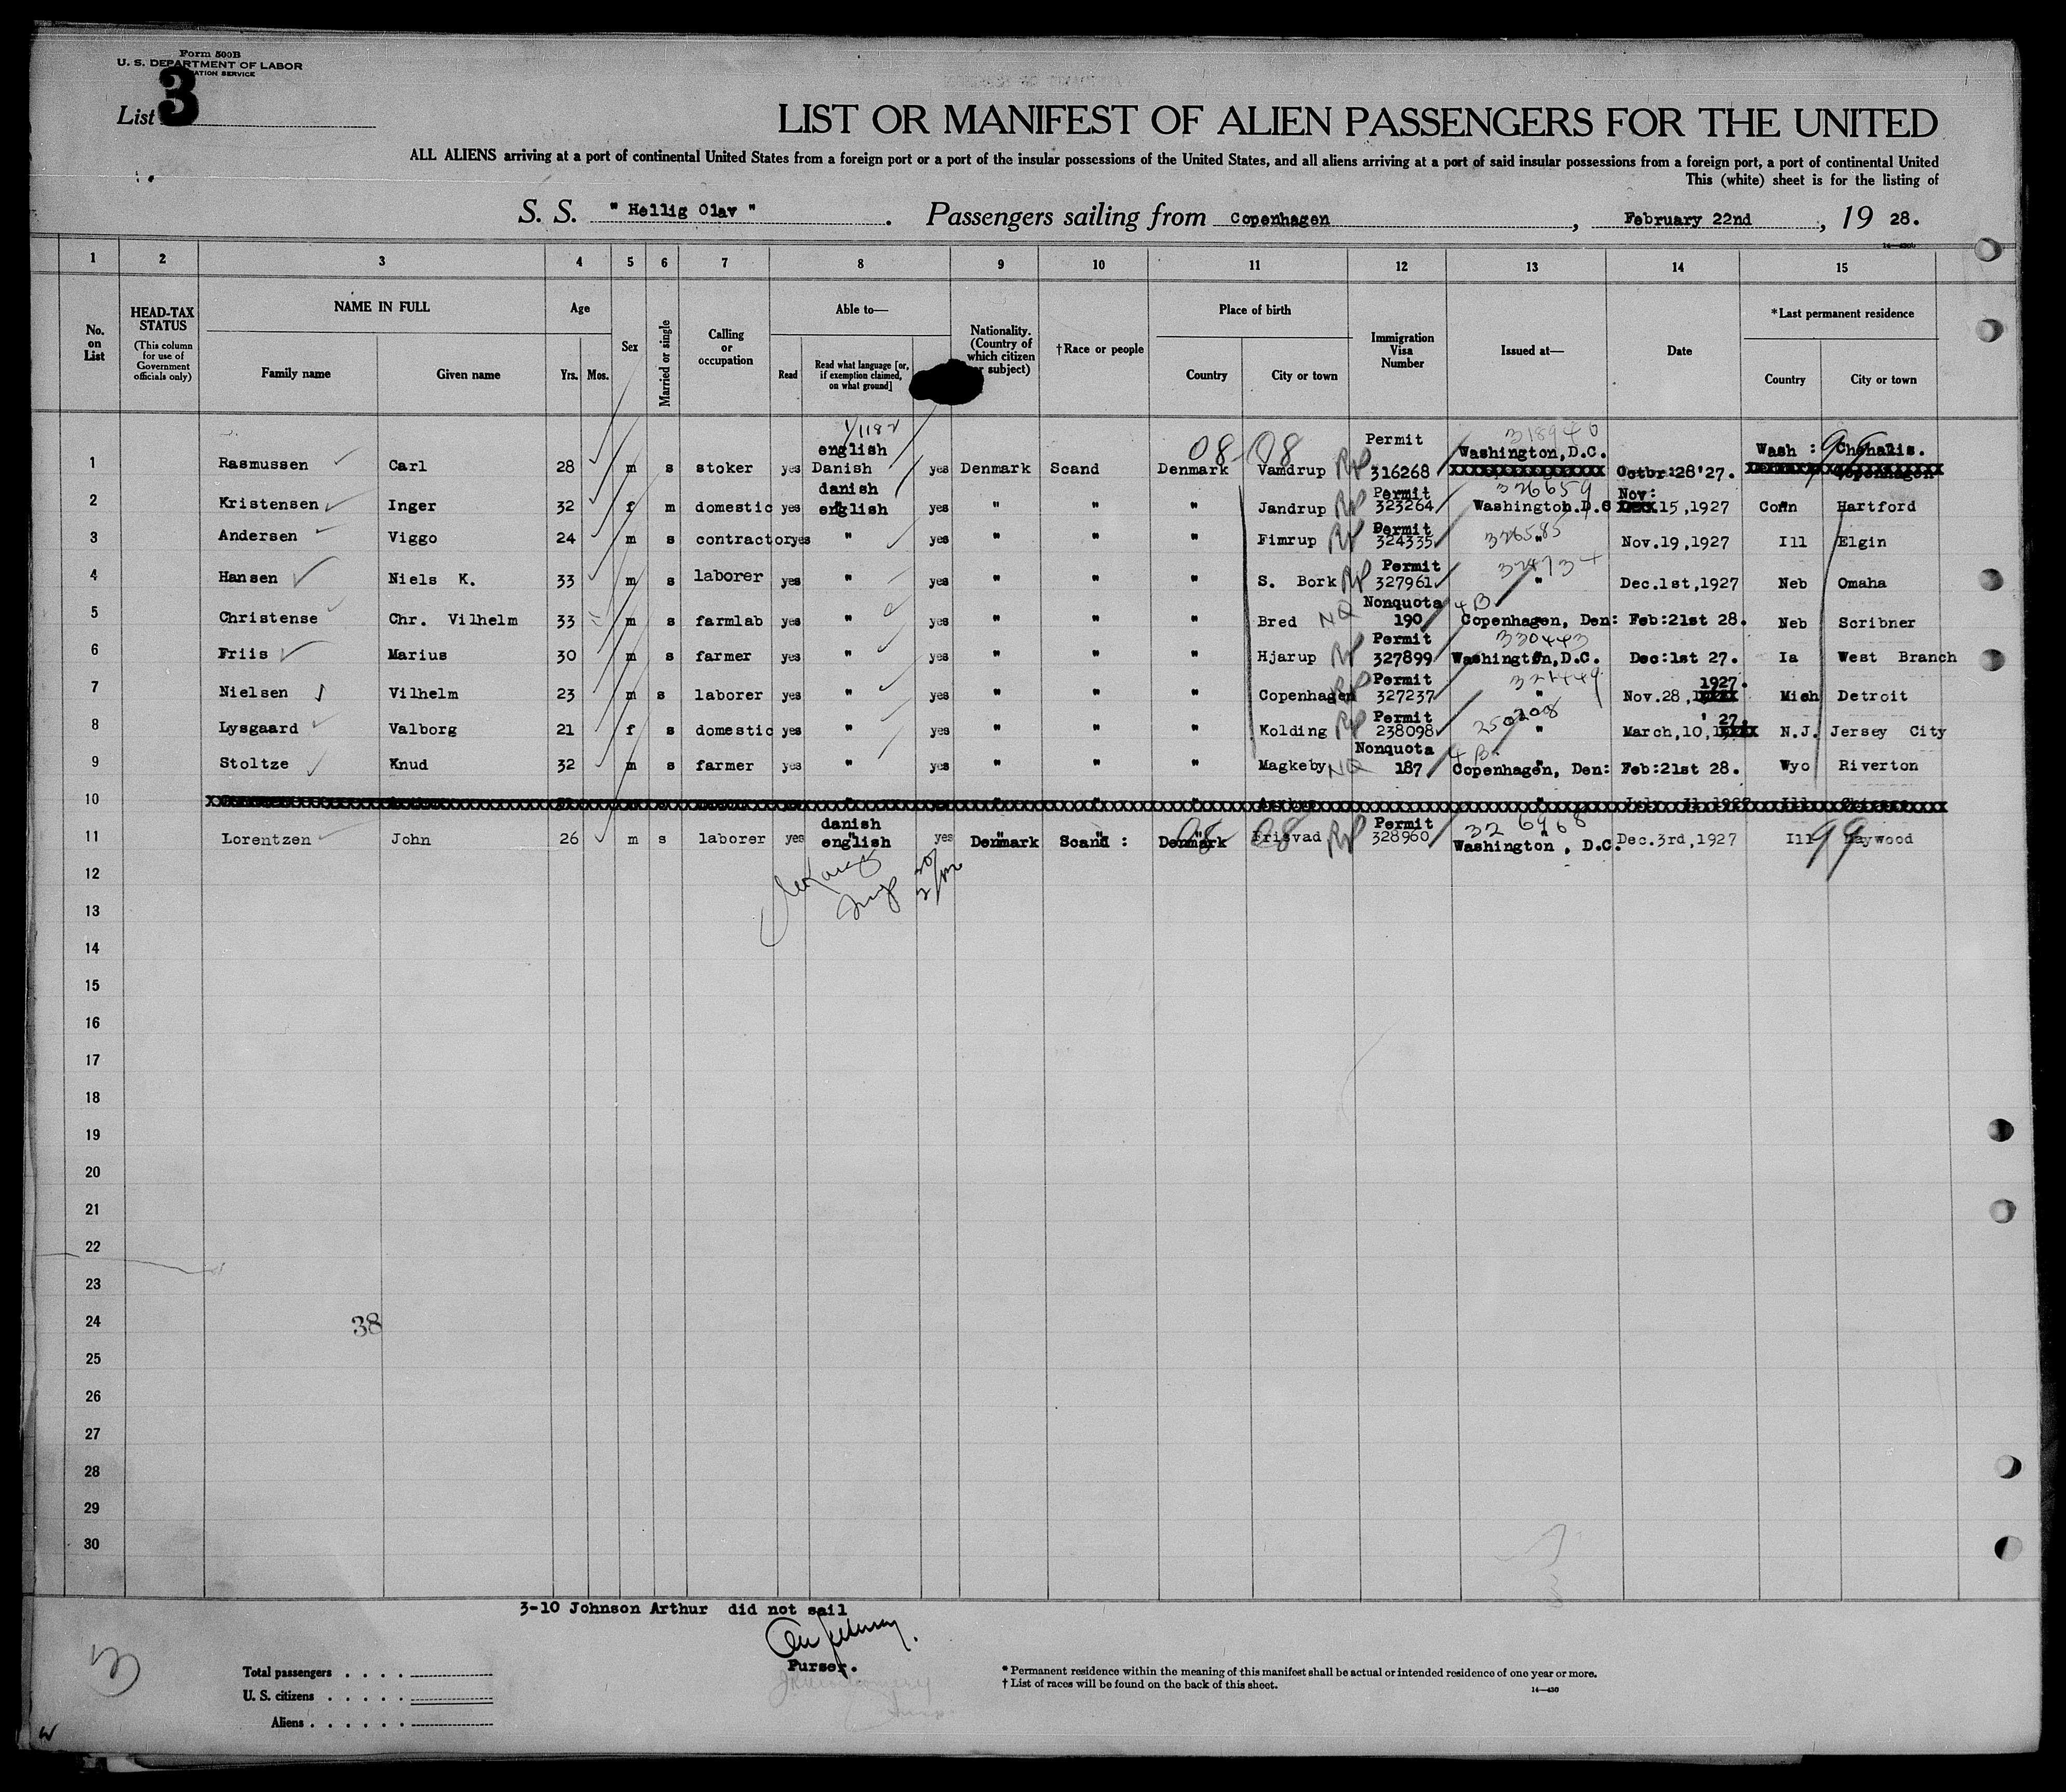 Form 500B
U. S. DEPARTMENT OF LABOR
ATION SERVICE
List 3
LIST OR MANIFEST OF ALIEN PASSENGERS FOR THE UNITED
ALL ALIENS arriving at a port of continental United States from a foreign port or a port of the insular possessions of the United States, and all aliens arriving at a port of said insular possessions from a foreign port, a port of continental United
This (white) sheet is for the listing of
S. S. " Hellig Olav " . Passengers sailing from Copenhagen , February 22nd , 19 28.
1 2 3 4 5 6 7 8 9 10 11 12 13 14 15
No. on List HEAD-TAX STATUS (This column for use of Government officials only) NAME IN FULL Family name Given name Age Yrs. Mos. Sex Married or single Calling or occupation Able to— Read Read what language [or, if exemption claimed, on what ground] Nationality. (Country of which citizen or subject) †Race or people Place of birth Country City or town Immigration Visa Number Issued at— Date *Last permanent residence Country City or town
1 Rasmussen Carl 28 m s stoker yes english Danish yes Denmark Scand Denmark 08 08 Vamdrup RP Permit 316268 318940 Washington,D.C. Octbr:28'27. Wash : 99 Chehalis.
2 Kristensen Inger 32 f m domestic yes danish english yes " " " Jandrup RP Permit 323264 326659 Washington.D.C Nov: 15,1927 Conn Hartford
3 Andersen Viggo 24 m s contractor yes " yes " " " Fimrup RP Permit 324335 326585 " Nov.19,1927 Ill Elgin
4 Hansen Niels K. 33 m s laborer yes " yes " " " S. Bork RP Permit 327961 " Dec.1st,1927 Neb Omaha
5 Christense Chr. Vilhelm 33 m s farmlab yes " yes " " " Bred NQ Nonquota 190 4 B Copenhagen, Den: Feb:21st 28. Neb Scribner
6 Friis Marius 30 m s farmer yes " yes " " " Hjarup RP Permit 327899 330443 Washington,D.C. Dec:1st 27. Ia West Branch
7 Nielsen Vilhelm 23 m s laborer yes " yes " " " Copenhagen RP Permit 327237 " Nov.28, 1927. Mich Detroit
8 Lysgaard Valborg 21 f s domestic yes " yes " " " Kolding RP Permit 238098 250208 " March,10, ' 27. N.J. Jersey City
9 Stoltze Knud 32 m s farmer yes " yes " " " Magkeby NQ Nonquota 187 4 B Copenhagen, Den: Feb:21st 28. Wyo Riverton
10
11 Lorentzen John 26 m s laborer yes danish english yes Denmark Scand : Denmark 08 08 Frisvad RP Permit 328960 326968 Washington , D.C. Dec.3rd,1927 Ill 99 Maywood
12
13
14
15
16
17
18
19
20
21
22
23
24 38
25
26
27
28
29
30
3-10 Johnson Arthur did not sail
Purser.
3
Total passengers
U. S. citizens
Aliens
* Permanent residence within the meaning of this manifest shall be actual or intended residence of one year or more.
† List of races will be found on the back of this sheet.
14—430
W